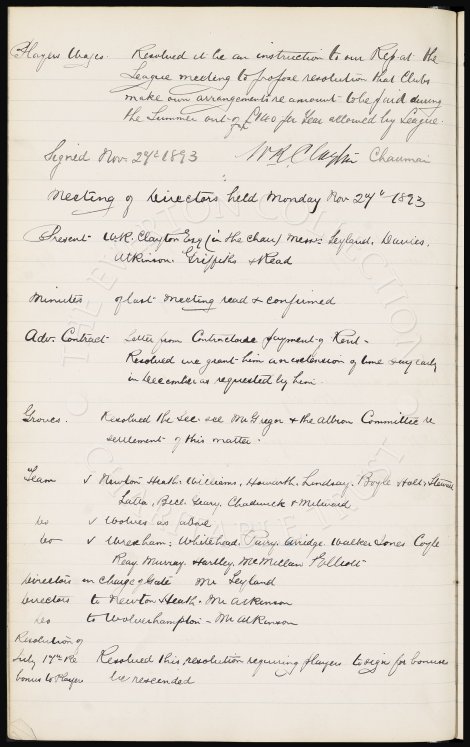 Players Wages. Resolved it be an instruction to our Rep at the
League meeting to propose resolution that Clubs
make own arrangements re amount to be paid during
the Summer out of £140 for Year allowed by League.
Signed Nov 27th 1893 W R Clayton Chairman
Meeting of Directors held Monday Nov 27th 1893
Present W.R. Clayton Esq (in the chair) Messrs Leyland, Davies,
Atkinson. Griffiths & Read
Minutes of last meeting read & confirmed
Adv. Contract Letter from Contractor payment of Rent -
Resolved we grant him an extension of time say early
in December as requested by him.
Groves. Resolved the Sec. see Mr Gregor & the Albion Committee re
settlement of this matter.
Team v Newton Heath. Williams, Howarth, Lindsay, Boyle & Holt, Stewart
Latta, Bell. Geary. Chadwick & Milward
Do v Wolves as above
Do v Wrexham: Whitehead. Parry. Arridge. Walker Jones Coyle
Reay. Murray. Hartley. McMillan & Elliott
Directors in Charge of Gate Mr Leyland
Directors to Newton Heath. Mr Atkinson
Do to Wolverhampton - Mr Atkinson
Resolution of
July 17th Re Resolved this resolution requiring players to sign for bonus
bonus to Players be rescended
THE EVERTON COLLECTION
CHARITABLE TRUST